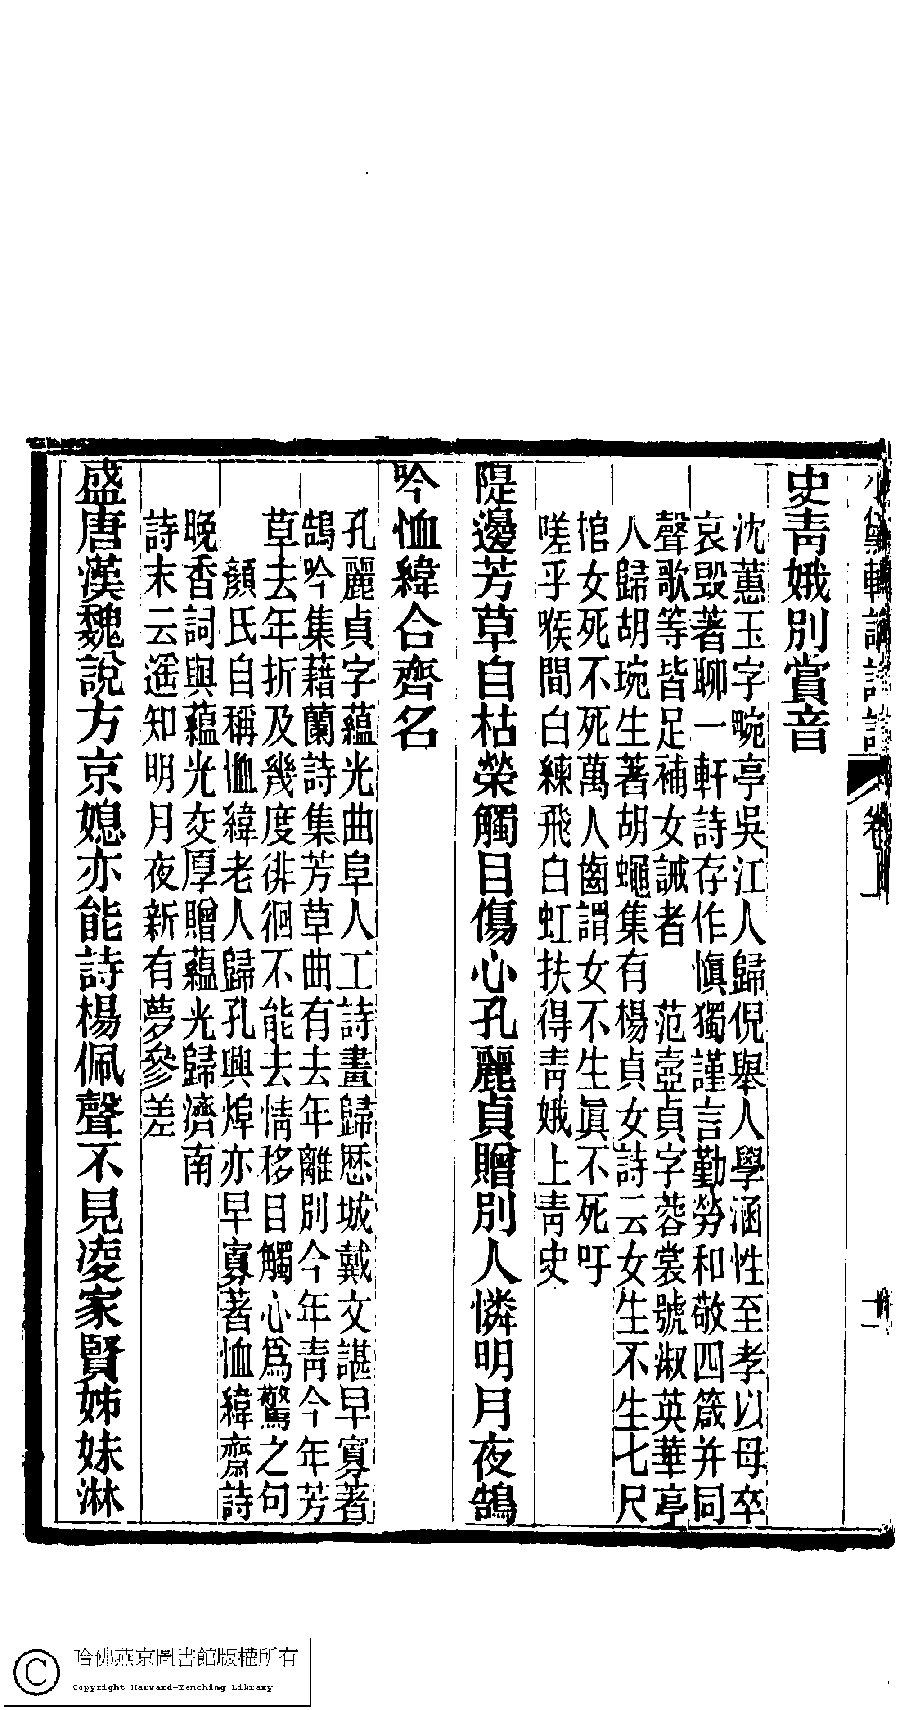 史靑娥別賞音
沈蕙玉字畹亭吳江人歸倪舉人學涵性至孝以母卒
哀毀著聊一軒詩存作愼獨謹言勤勞和敬四箴并同
聲歌等皆足補女誡者　范壼貞字蓉裳號淑英華亭
人歸胡琬生著胡蠅集有楊貞女詩云女生不生七尺
棺女死不死萬人齒謂女不生眞不死吁
嗟乎喉間白練飛白虹扶得靑娥上靑史
隄邊芳草自枯榮觸目傷心孔麗貞贈別人憐明月夜鵠
吟恤緯合齊名
孔麗貞字蘊光曲阜人工詩畫歸歷城戴文諶早寡著
鵠吟集藉蘭詩集芳草曲有去年離別今年靑今年芳
草去年折及幾度徘徊不能去情移目觸心爲驚之句
顏氏自稱恤緯老人歸孔興焯亦早寡著恤緯齋詩
晚香詞與蘊光交厚贈蘊光歸濟南
詩末云遙知明月夜新有夢參差
盛唐漢魏說方京媳亦能詩楊佩聲不見凌家賢姊妹淋
哈佛燕京圖書館版權所有
Copyright Harvard-Yenching Library